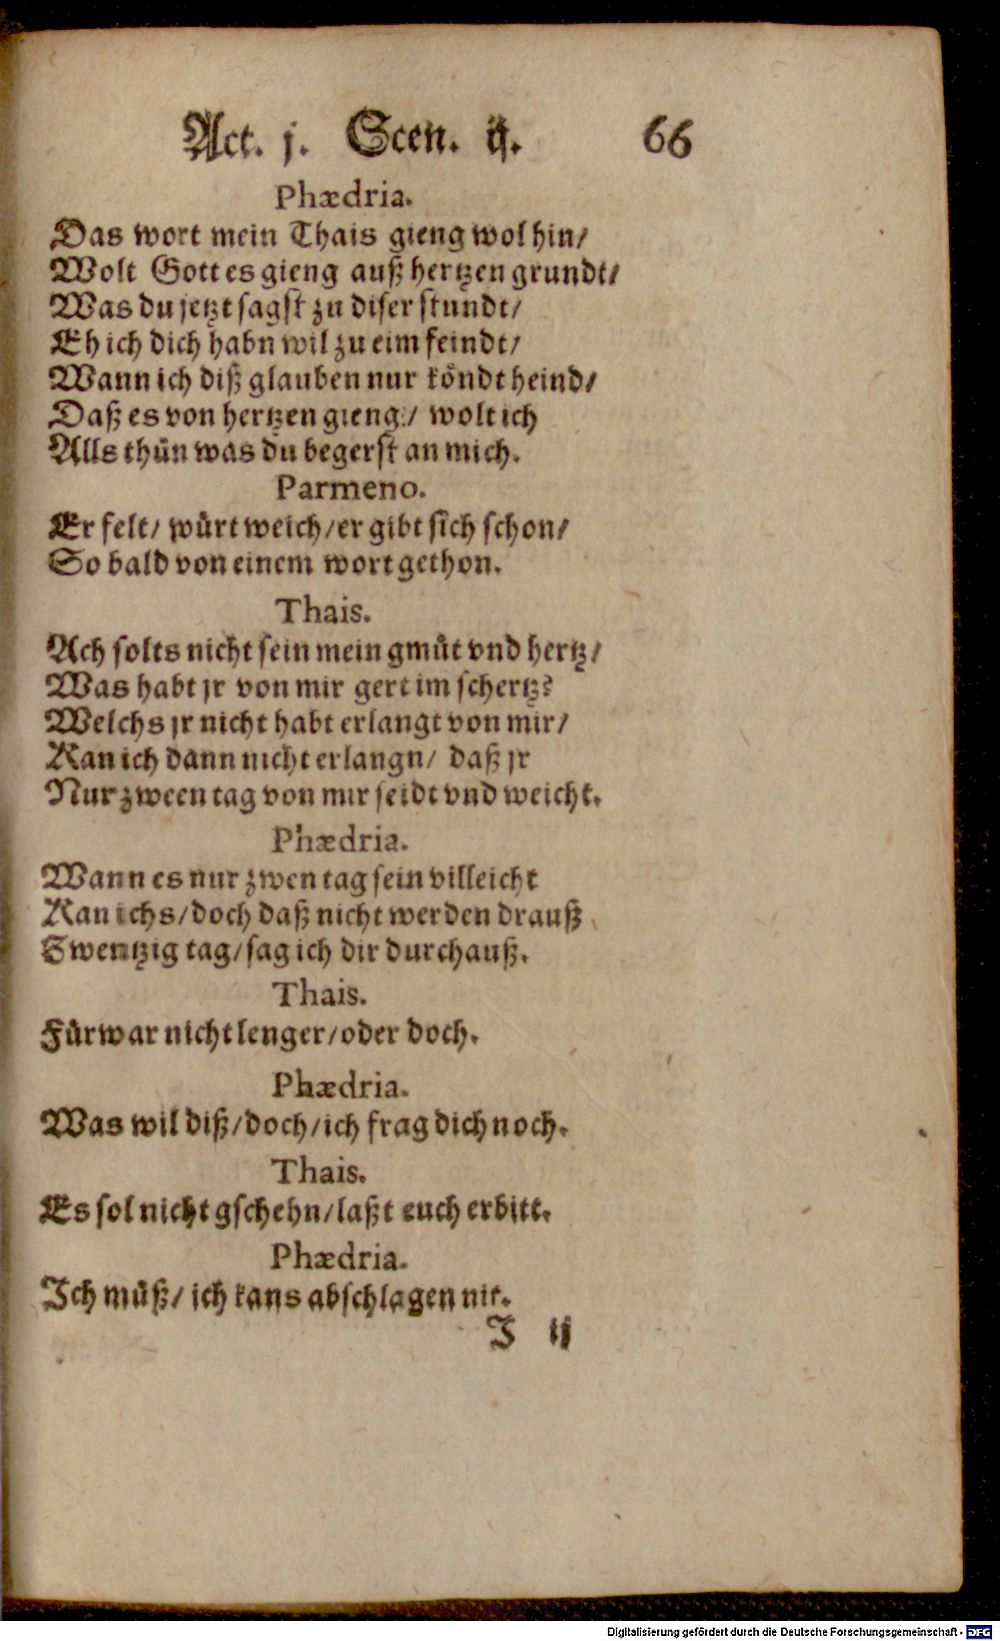 Act. j. Scen. ij. 66
Phædria.
Das wort mein Thais gieng wol hin/
Wolt Gott es gieng auß hertzen grundt/
Was du jetzt sagst zu diser stundt/
Eh ich dich habn wil zu eim feindt/
Wann ich diß glauben nur koͤndt heind/
Daß es von hertzen gieng/ wolt ich
Alls thuͤn was du begerst an mich.
Parmeno.
Er felt/ wuͤrt weich/er gibt sich schon/
So bald von einem wort gethon.
Thais.
Ach solts nicht sein mein gmuͤt vnd hertz/
Was habt jr von mir gert im schertz?
Welchs jr nicht habt erlangt von mir/
Kan ich dann nicht erlangn/ daß jr
Nur zween tag von mir seidt vnd weicht.
Phædria.
Wann es nur zwen tag sein villeicht
Kan ichs/doch daß nicht werden drauß
Swentzig tag/sag ich dir durchauß.
Thais.
Fuͤrwar nicht lenger/oder doch.
Phædria.
Was wil diß/doch/ich frag dich noch.
Thais.
Es sol nicht gschehn/laßt euch erbitt.
Phædria.
Ich muͤß/ ich kans abschlagen nit.
I ij
Digitalisierung gefördert durch die Deutsche Forschungsgemeinschaft - DFG